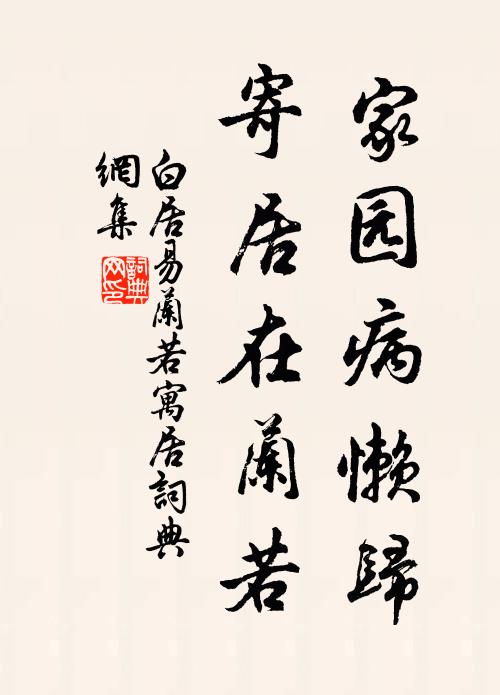 家园病懒歸
寄居在蘭若
白居易蘭若寓居詞典
網集
詞典
网印